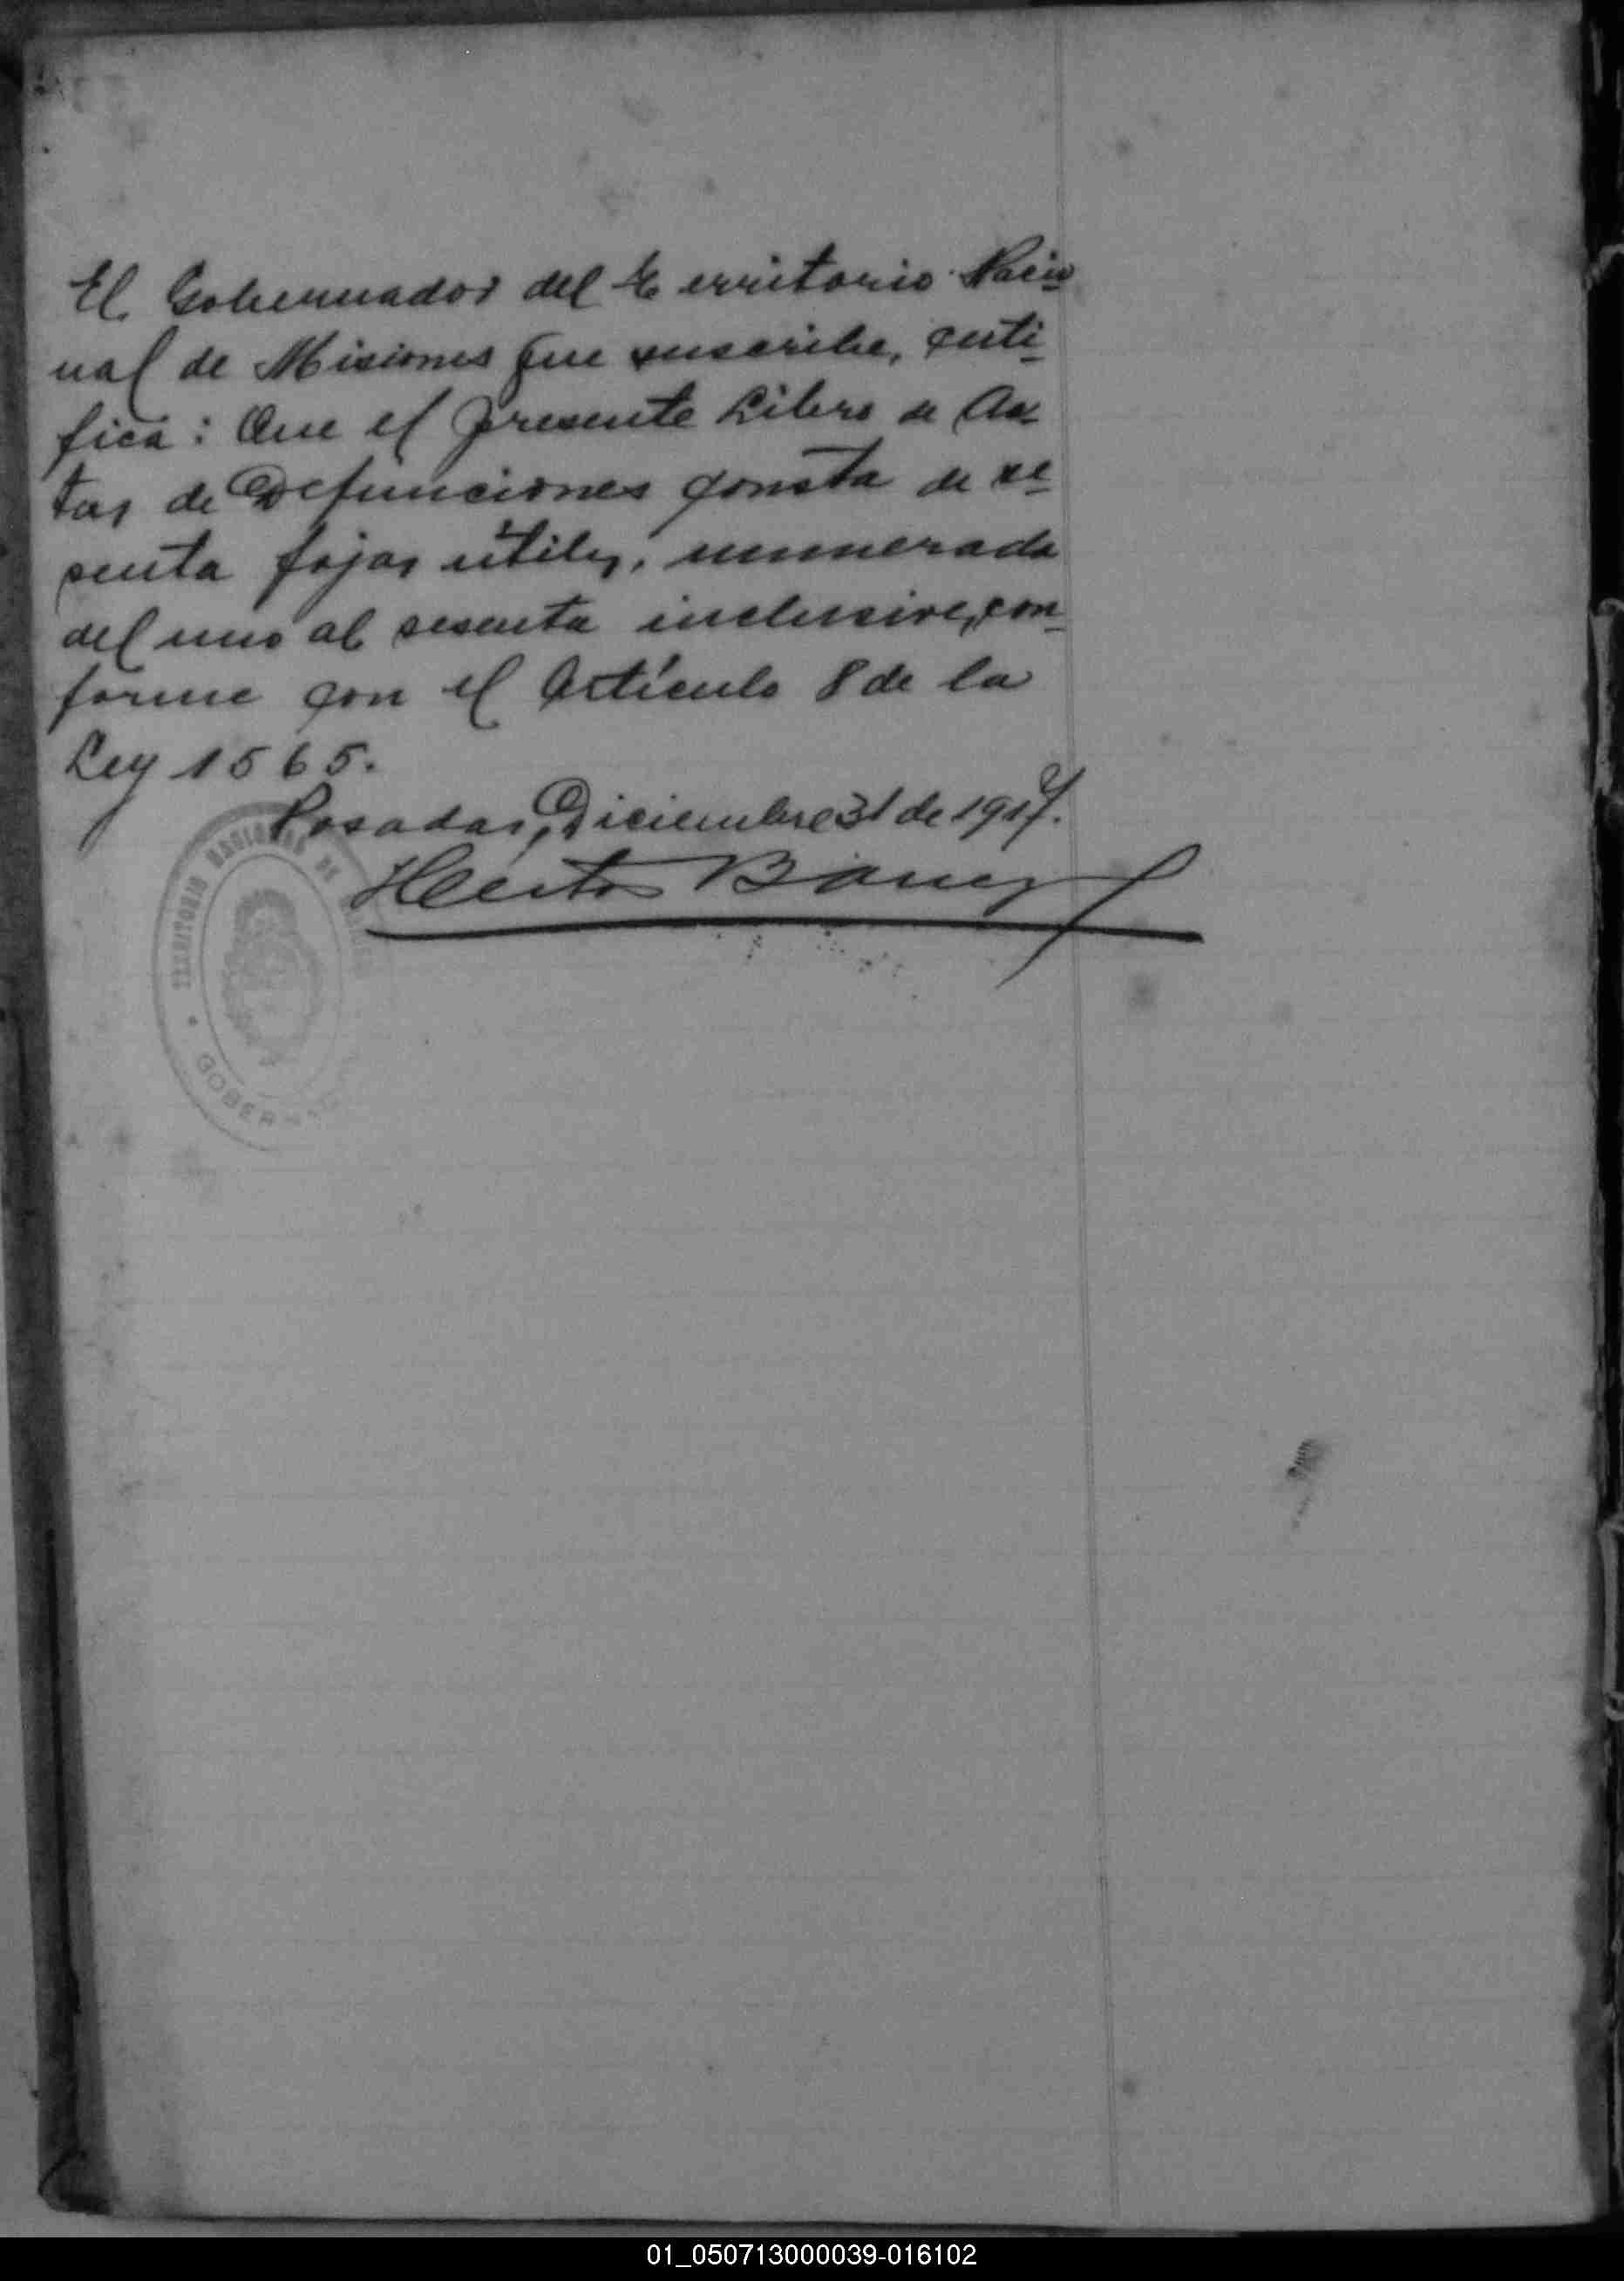 El Gobernador del Territorio Nacio
nal de Misiones que suscribe, certi
fica: Que el presente Libro de Ac
tas de Defunciones consta de se
senta fojas útiles, numerada
del uno al sesenta inclusive, con
forme con el Artículo 8 de la
Ley 1565.
Posadas, Diciembre 31 de 1917.
TERRITORIO NACIONAL DE
GOBER
01_050713000039-016102